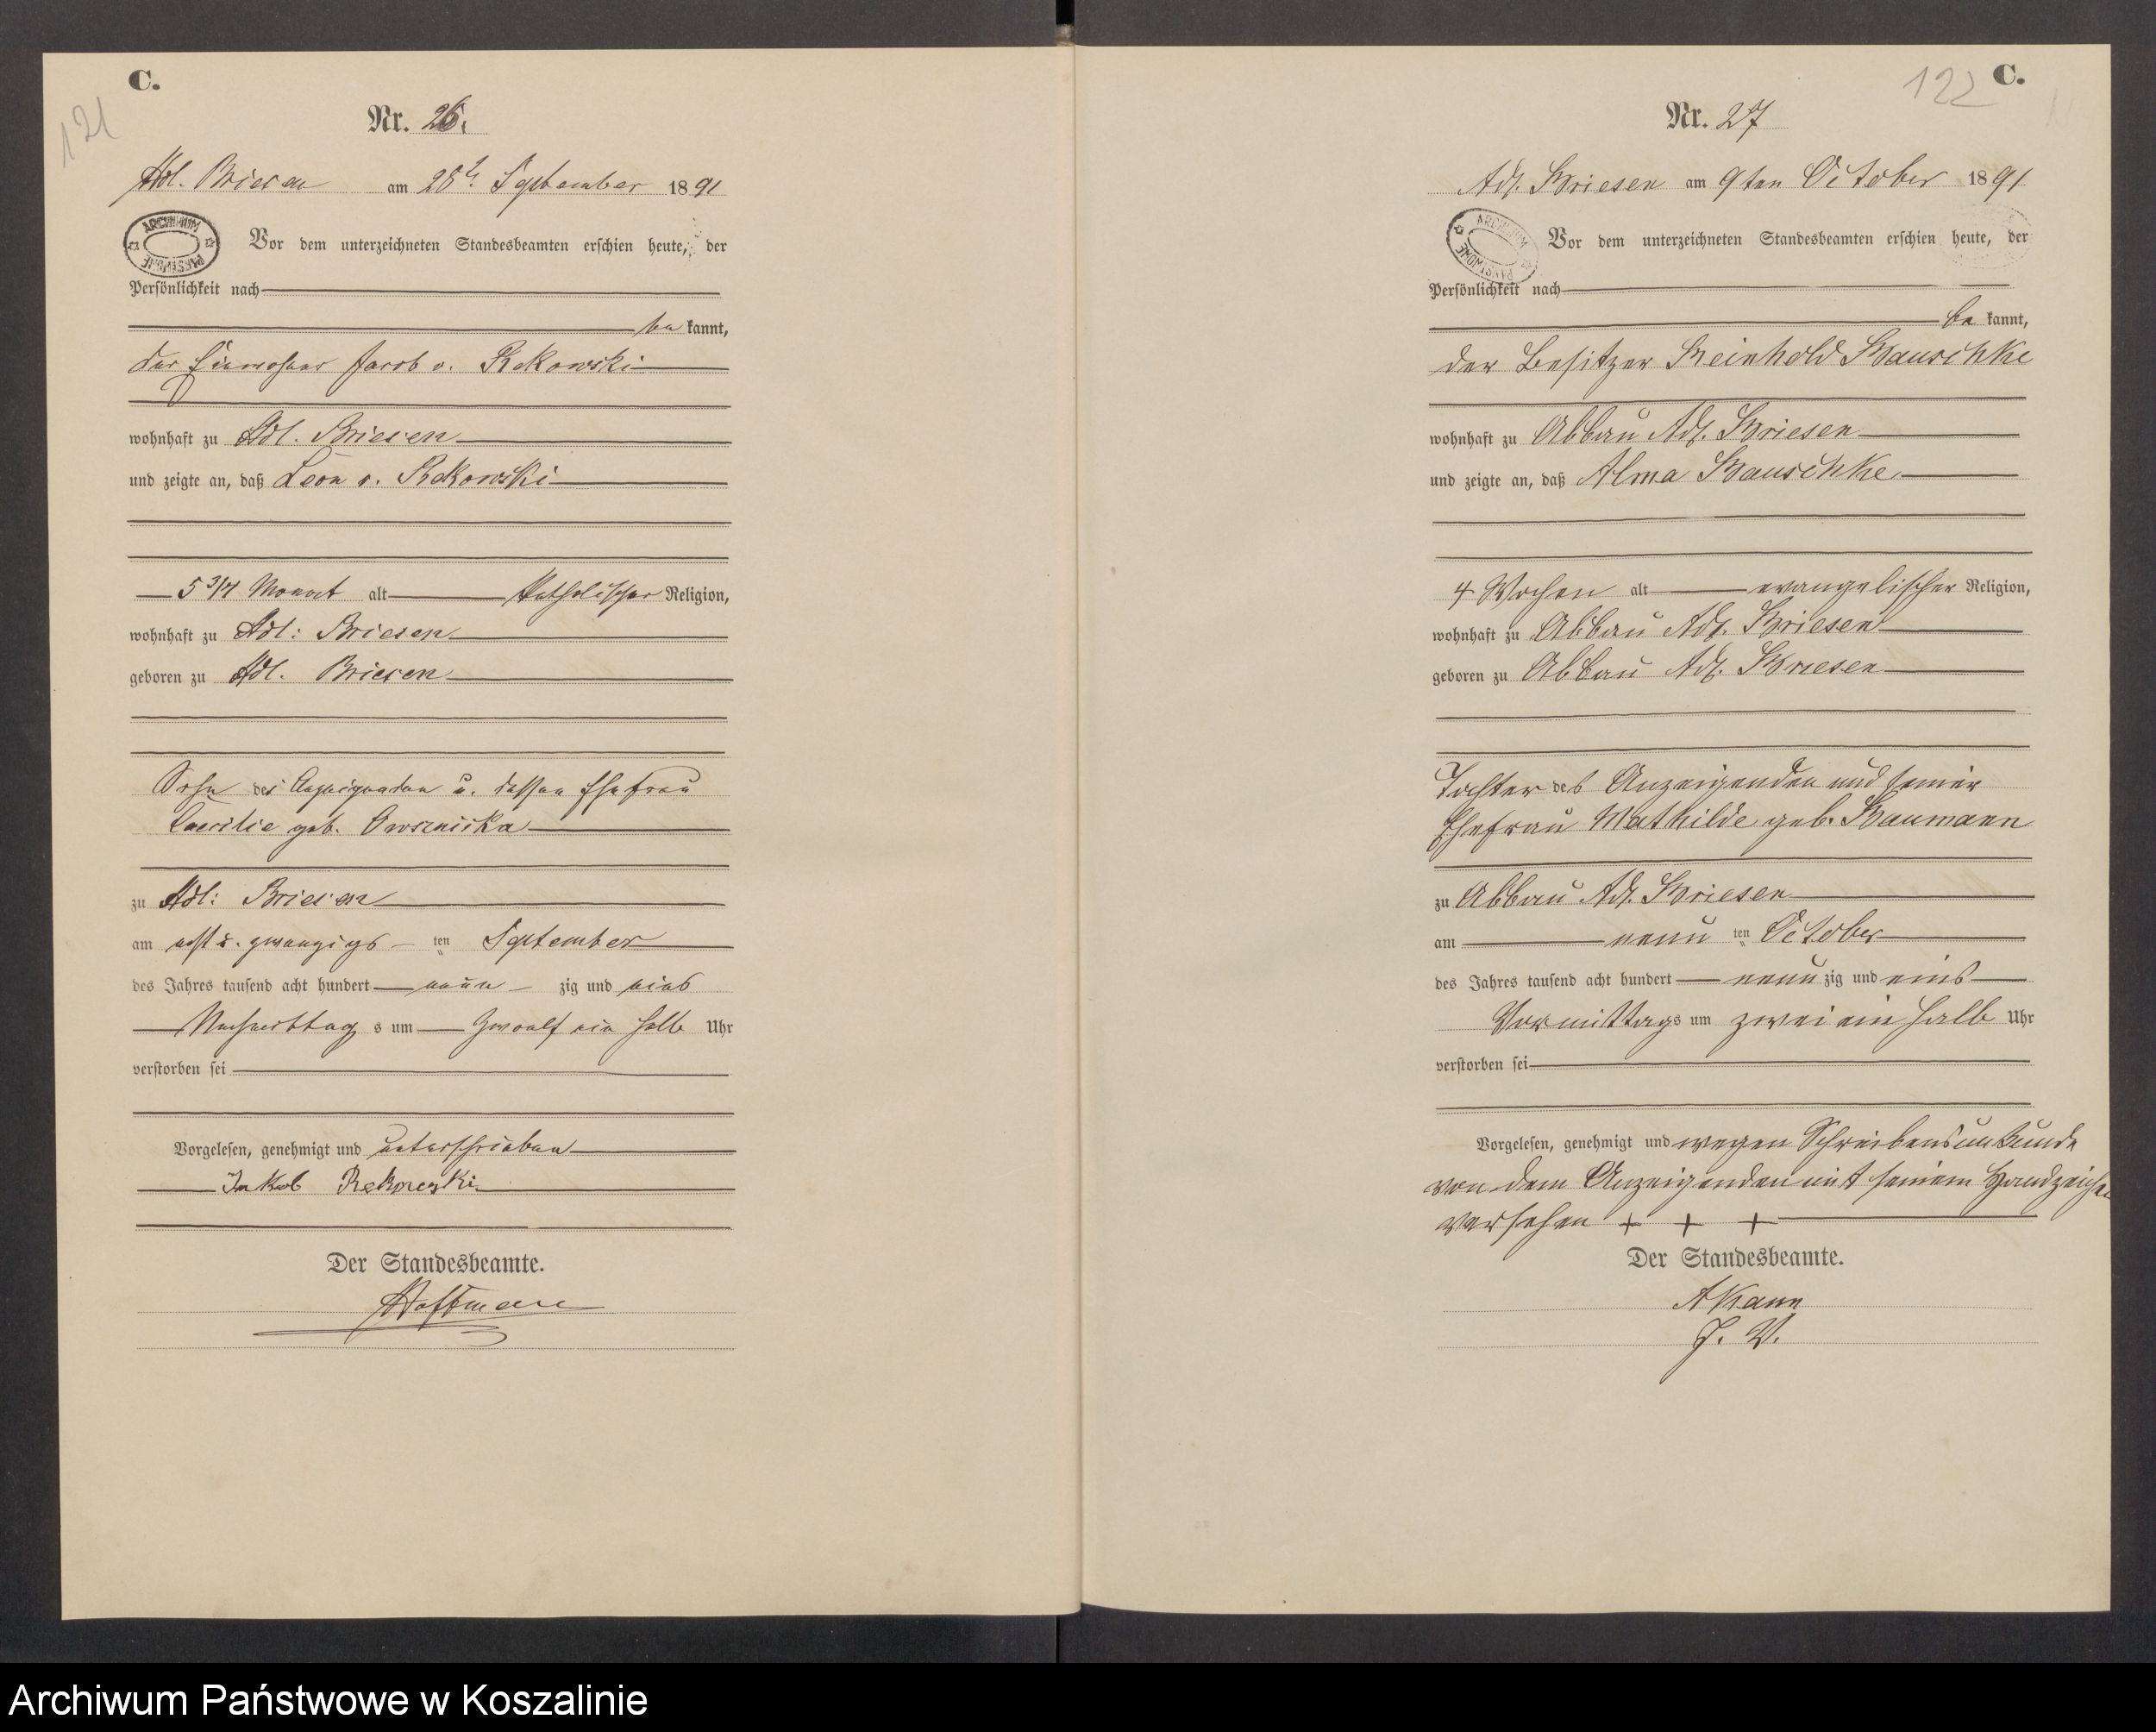 C.
121
Nr. 26.
Adl. Briesen am 28t. September 1891
ARCHIWUM PAŃSTWOWE
Vor dem unterzeichneten Standesbeamten erschien heute, der
Persönlichkeit nach
be kannt,
der Einwohner Jacob v. Rekowski
wohnhaft zu Adl. Briesen
und zeigte an, daß Leon v. Rekowski
5 3/4 Monat alt katholischer Religion,
wohnhaft zu Adl: Briesen
geboren zu Adl. Briesen
Sohn des Anzeigenden u. dessen Ehefrau
Caecilie geb.
zu Adl: Briesen
am acht u. zwanzigs ten September
des Jahres tausend acht hundert neun zig und eins
Nachmittag s um zwoelf ein halb Uhr
verstorben sei
Vorgelesen, genehmigt und unterschrieben
Jakob
Der Standesbeamte.
Hoffmann
122
C.
Nr. 27
Adl. Briesen am 9ten October 1891
ARCHIWUM PAŃSTWOWE
Vor dem unterzeichneten Standesbeamten erschien heute, der
Persönlichkeit nach
be kannt,
der Besitzer Reinhold Bauschke
wohnhaft zu Abbau Adl. Briesen
und zeigte an, daß Alma Bauschke
4 Wochen alt evangelischer Religion,
wohnhaft zu Abbau Adl. Briesen
geboren zu Abbau Adl. Briesen
Tochter des Anzeigenden und seiner
Ehefrau Mathilde geb. Baumann
zu Abbau Adl. Briesen
am neun ten October
des Jahres tausend acht hundert neun zig und eins
Vormittags um zwei ein halb Uhr
verstorben sei
Vorgelesen, genehmigt und wegen Schreibensunkunde
von dem Anzeigenden mit seinem Handzeichen
versehen + + +
Der Standesbeamte.
J. V.
Archiwum Państwowe w Koszalinie